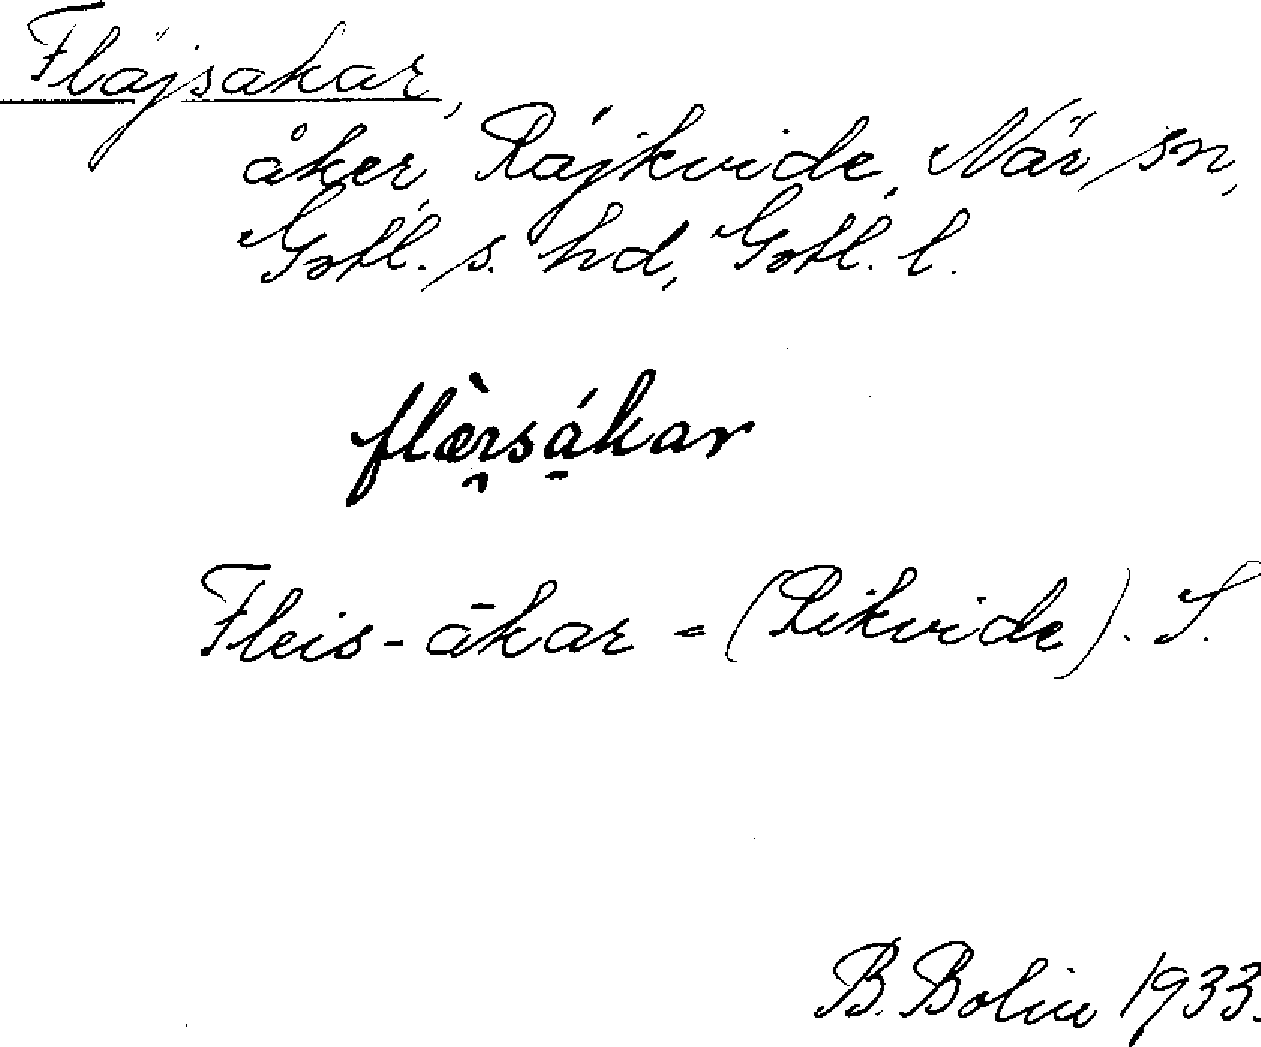 Fläjsakar,
åker, Räjkvide, När sn,
Gotl. s. hd, Gotl. l.
flæ̀ı̯sá̱kar
Fleis-ākar = (Rikvide). S.
B. Bolin 1933.